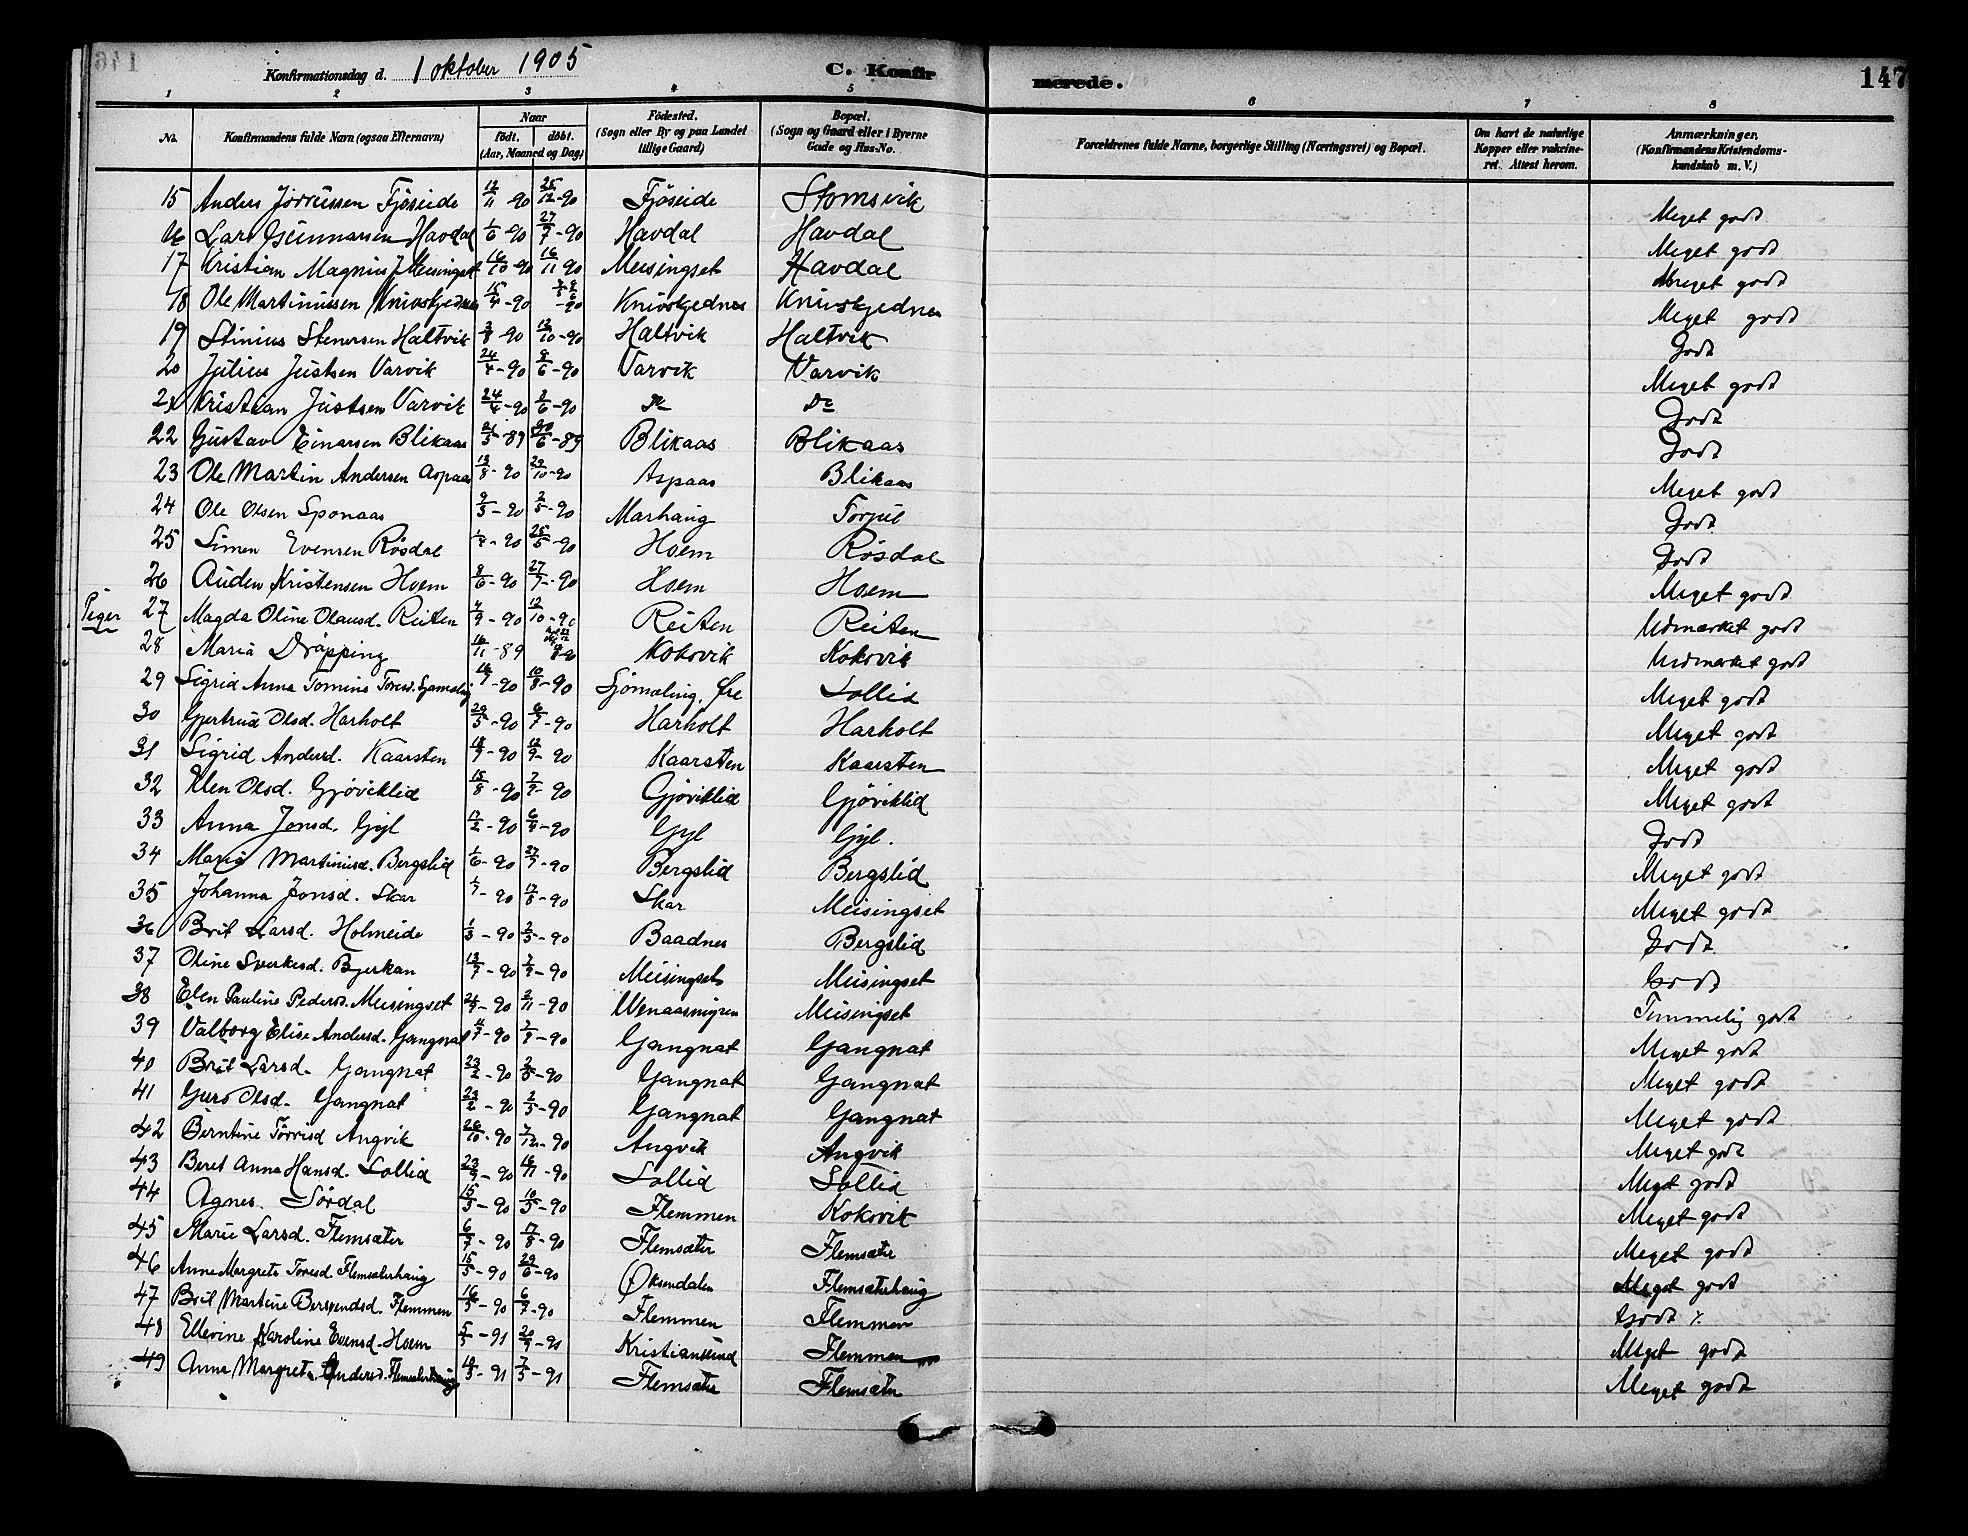 Konfirmationsdag d. 1 oktober 1905 C. Konfir merede. 147
1 2 3 4 5 6 7 8
No. Konfirmandens fulde Navn (ogsaa Efternavn) Naar født. døbt. (Aar, Maaned og Dag) Fødested. (Sogn eller By og paa Landet tillige Gaard) Bopæl. (Sogn og Gaard eller i Byerne Gade og Hus-No. Forældrenes fulde Navne, borgerlige Stilling (Næringsvei) og Bopæl. Om havt de naturlige Kopper eller vakcineret. Attest herom. Anmærkninger. (Konfirmandens Kristendomskundskab m. V.)
15 Anders Fjøseide 12/11 -90 25/12 -90 Fjøseide Stomsvik Meget godt
16 Lars Gunnarsen Havdal 1/6 -90 27/7 -90 Havdal Havdal Meget godt
17 Kristian Magnus J. Meisingset 16/10 -90 16/11 90 Meisingset Havdal Meget godt
18 Ole Martinussen Knivskjednes 15/4 -90 -90 Knivskjednes Knivskjednes Meget godt
19 Stinius Stenersen Haltvik 3/8 -90 12/10 -90 Haltvik Haltvik Godt
20 Julius Justsen Varvik 24/4 -90 8/6 -90 Varvik Varvik Meget godt
21 Kristian Justsen Varvik 24/4 -90 8/6 -90 Do Do Godt
22 Gustav Einarsen Blikaas 21/5 -89 30/6 -89 Blikaas Blikaas Godt
23 Ole Martin Andersen Aspaas 13/8 -90 20/10 -90 Aspaas Blikaas Meget godt
24 Ole Olsen Sponaas 9/3 -90 2/5 -90 Marhaug Torjul Godt
25 Simen Evensen Røsdal -90 25/5 -90 Hoem Røsdal Godt
26 Auden Kristensen Hoem 8/6 -90 27/7 -90 Hoem Hoem Meget godt
Piger 27 Magda Oline Olausd. Reiten 4/9 -90 12/10 -90 Reiten Reiten Udmærket godt
28 Maria Drøpping 16/11 -89 Koksvik Koksvik Udmærket godt
29 Sigrid Anna Tomine Toresd. Sjømæling 16/7 -90 10/8 -90 Sjømæling, Øre Sollid Meget godt
30 Gjertrud Olsd. Harholt 29/5 -90 6/7 -90 Harholt Harholt Meget godt
31 Sigrid Andersd. Kaarsten 18/7 -90 12/9 -90 Kaarsten Kaarsten Meget godt
32 Elen Olsd. Gjøviklid 15/8 -90 7/9 -90 Gjøviklid Gjøviklid Meget godt
33 Anna Jonsd. Gyl 12/2 -90 6/4 -90 Gyl Gyl. Godt
34 Maria Martinusd. Bergslid 1/6 -90 27/7 -90 Bergslid Bergslid Meget godt
35 Johanna Jonsd. Skar 1/7 -90 17/8 -90 Skar Meisingset Meget godt
36 Brit Larsd. Holmeide 1/3 -90 2/5 -90 Baadnes Bergslid Godt
37 Oline Sverkesd. Bjerkan 13/7 -90 7/9 -90 Meisingset Meisingset Godt
38 Elen Pauline Pedersd. Meisingset 24/9 -90 2/11 -90 Wenaasmyren Meisingset Temmelig godt
39 Valborg Elise Andersd. Gangnat 11/7 -90 7/9 -90 Gangnat Gangnat Meget godt
40 Brit Larsd. Gangnat 23/2 -90 2/5 -90 Gangnat Gangnat Meget godt
41 Guro Olsd. Gangnat 23/2 -90 2/5 -90 Gangnat Gangnat Meget godt
42 Berntine Torrisd Angvik 26/10 -90 7/12 -90 Angvik Angvik Meget godt
43 Beret Anna Hansd. Sollid 23/9 -90 16/11 -90 Sollid Sollid Meget godt
44 Agnes Sørdal 15/3 -90 10/5 -90 Flemmen Koksvik Meget godt
45 Marie Larsd. Flemsæter 6/7 -90 17/8 -90 Flemsæter Flemsæter Meget godt
46 Anne Margrete Toresd. Flemsæterhaug 15/5 -90 29/6 -90 Øksendalen Flemsæterhaug Meget godt
47 Brit Martine Bersvendsd. Flemmen 16/5 -90 6/7 -90 Flemmen Flemmen Godt ٪
48 Ellevine Karoline Evensd. Hoem 5/3 -91 20/9 -91 Kristiansund Flemmen Meget godt
49 Anne Margrete Andersd. Flemsæterhaug 18/3 -91 7/5 -91 Flemsæter Flemsæter Meget godt